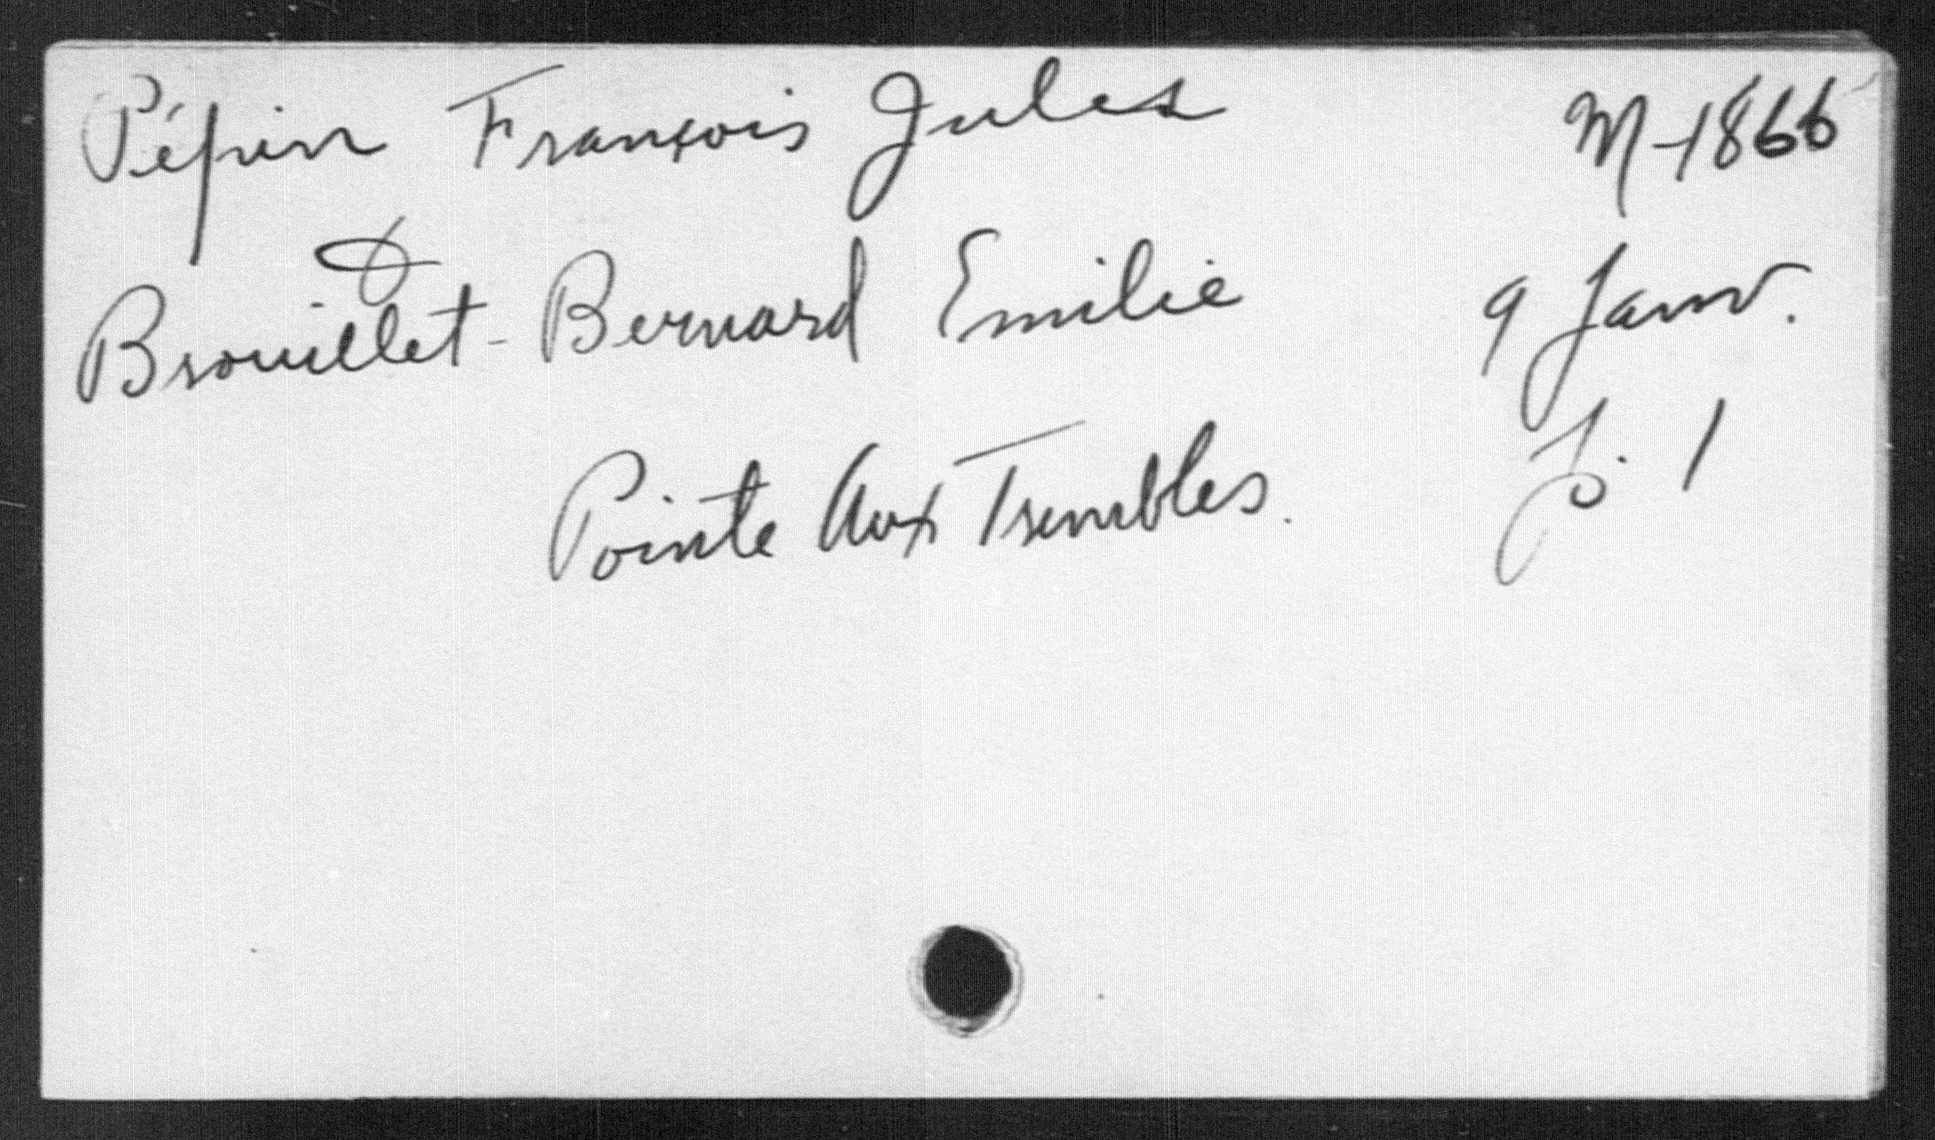 Pépin François Jules M-1866
&
Brouillet-Bernard Emilie 9 Janv.
Pointe Aux Trembles. f. 1